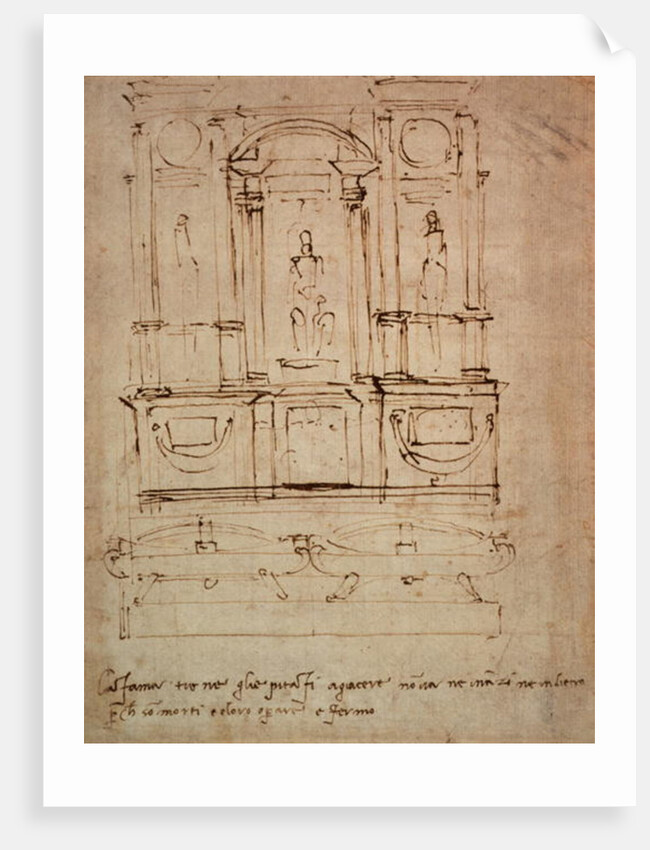 La fama tiene gli epitafi a giacere nō va ne inā zi ne in dietro
p̄ch sō morti e el loro op̄are e fermo